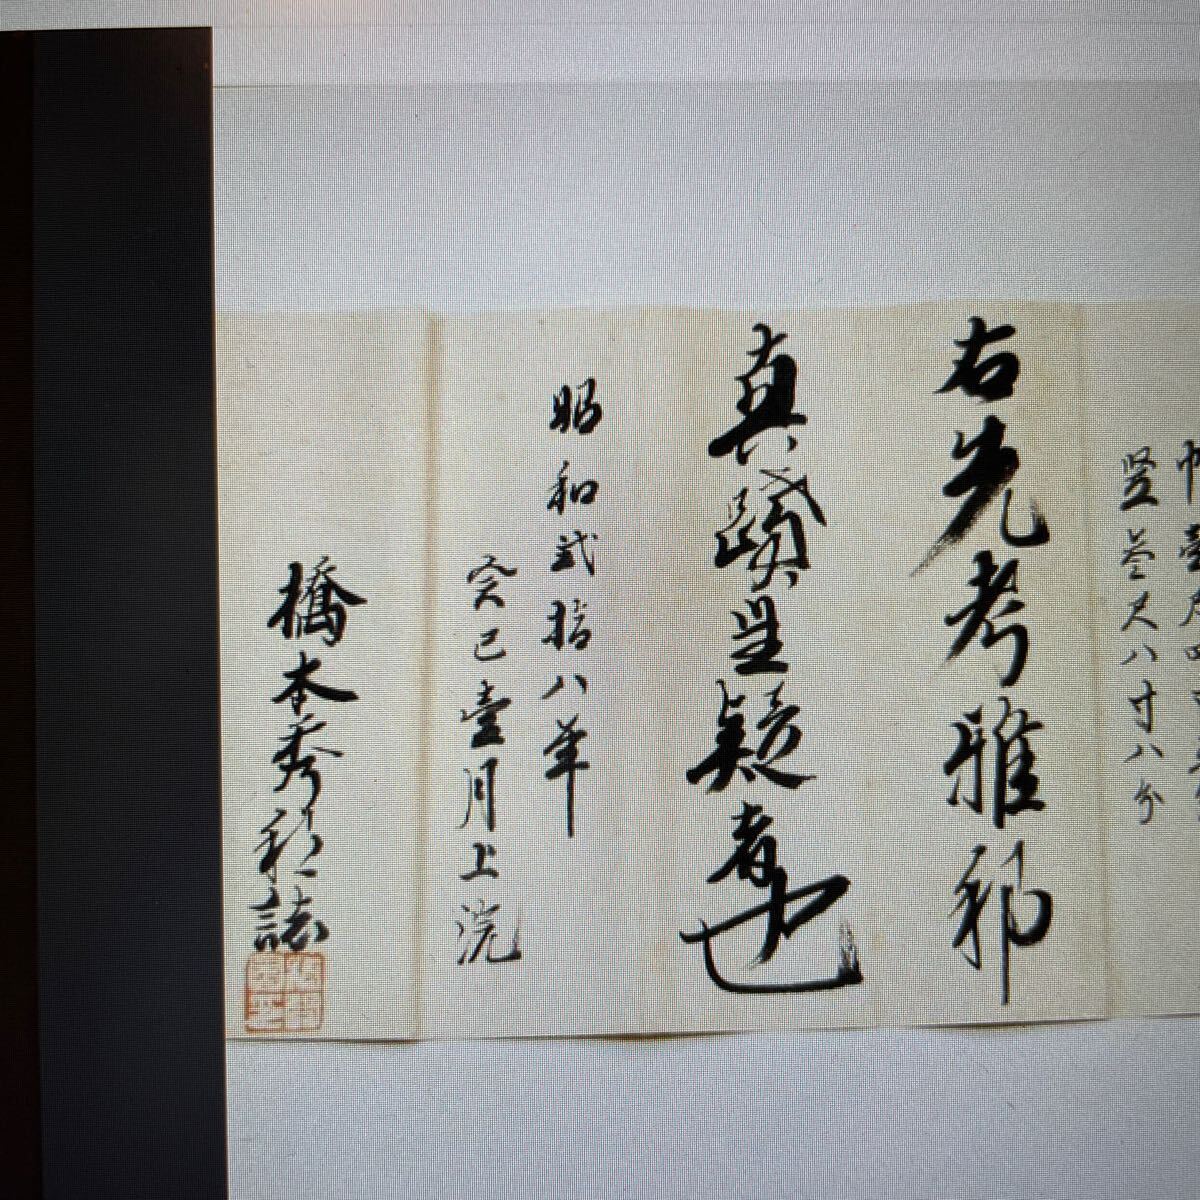 竪叁尺八寸八分
右先考雅邦
真蹟疑者也
昭和弍拾八年
癸巳壹月上浣
橋本秀邦誌